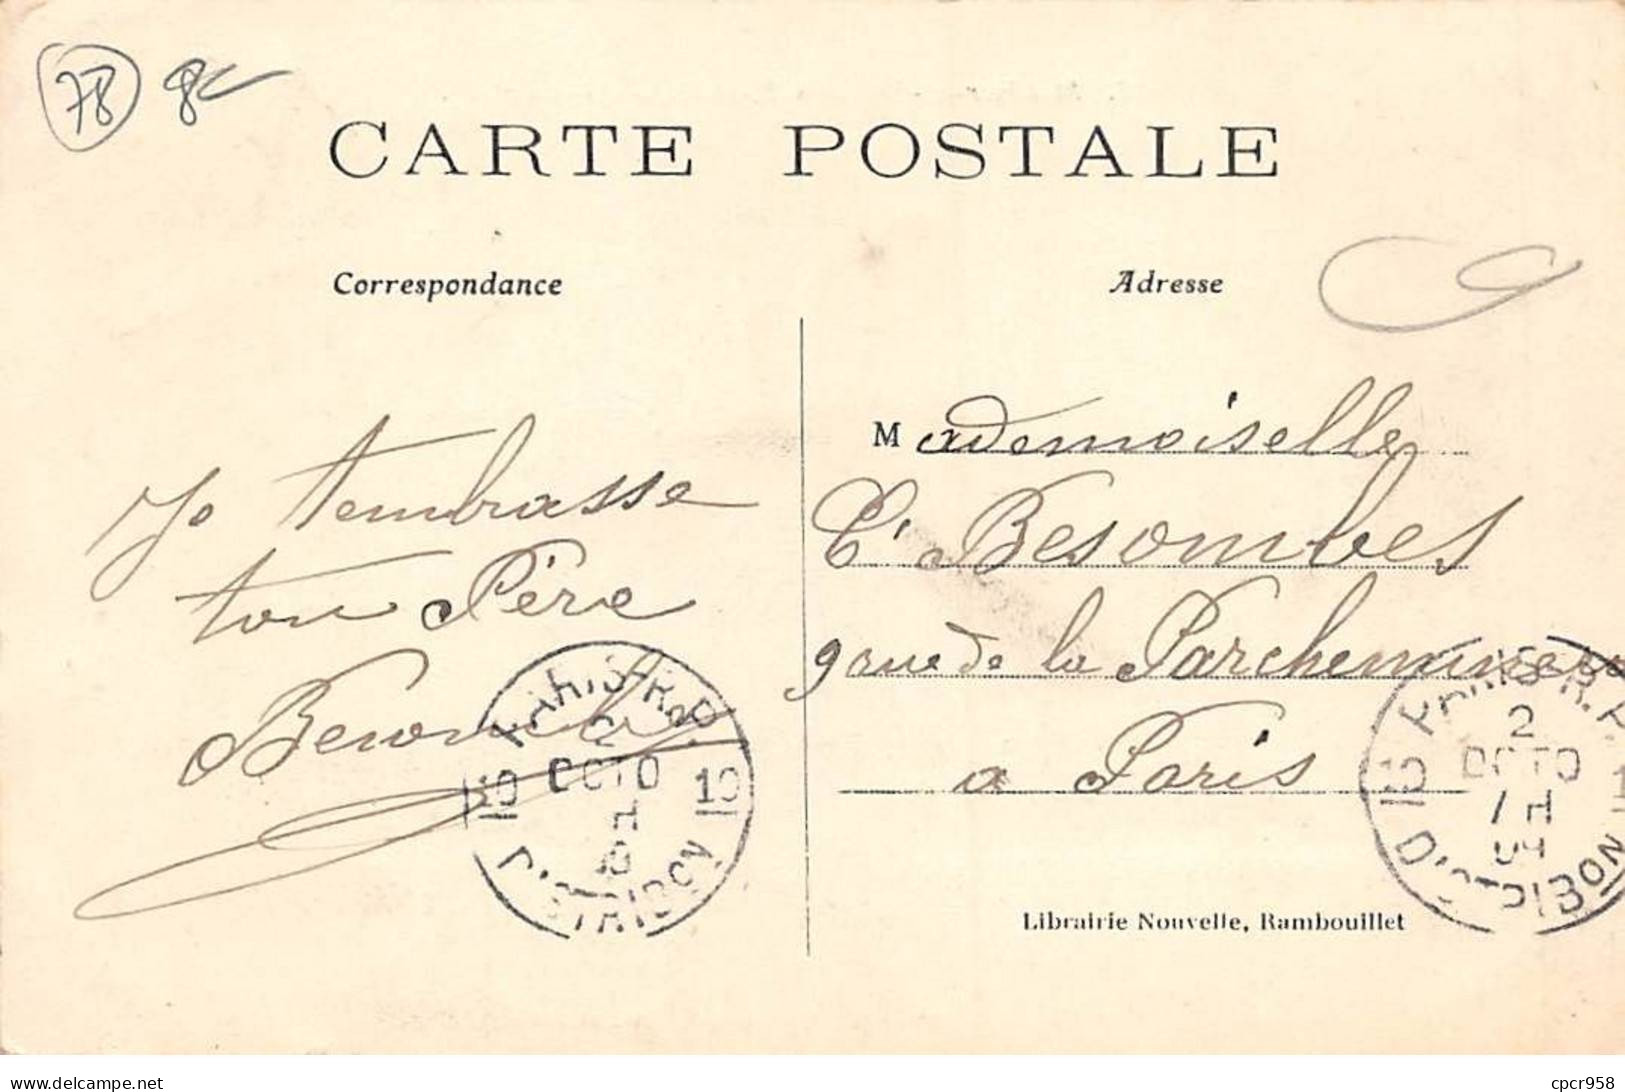 78 8€
CARTE POSTALE
Correspondance
Adresse
Je t'embrasse
ton Père
Besombes
Mademoiselle
C. Besombes
9 rue de la Parcheminerie
a Paris
PARIS R.P.
2
OCTO
10 10
DISTRIBON
PARIS R.P.
2
OCTO
7 H
09
DISTRIBON
Librairie Nouvelle, Rambouillet
https://www.delcampe.net
cpcr958